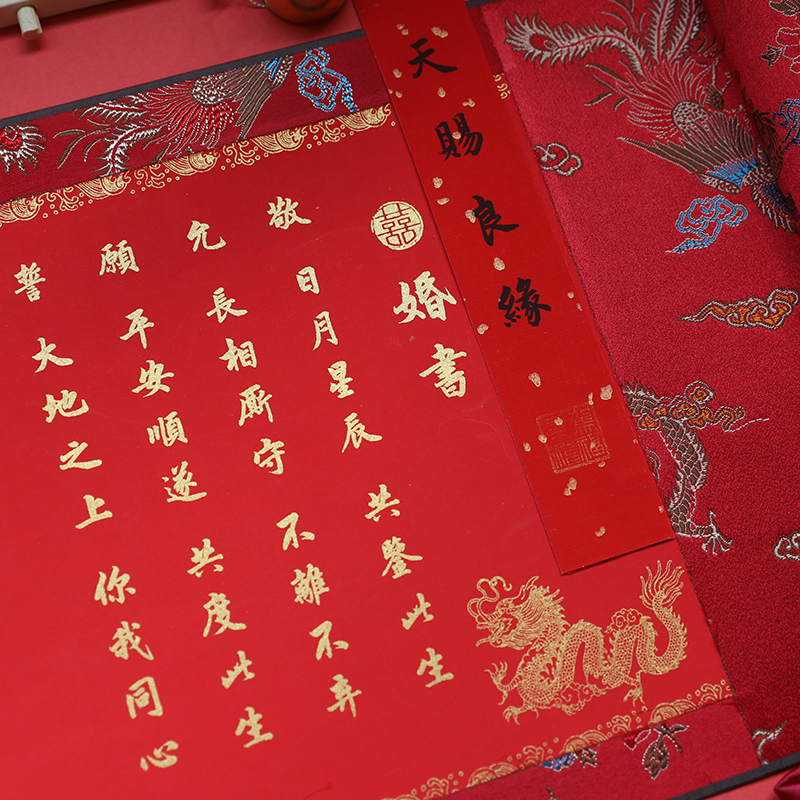 天賜良緣
囍
婚書
敬 日月星辰 共鑒此生
允 長相厮守 不離不弃
願 平安順遂 共度此生
誓 大地之上 你我同心